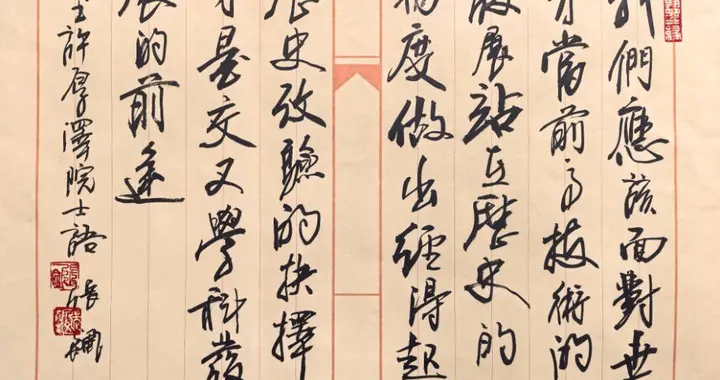 我們應該面對世
界當前高技術的
發展站在歷史的
度做出經得起
歷史攷驗的抉擇
才是交叉學科發
展的前途
許厚澤院士語 張